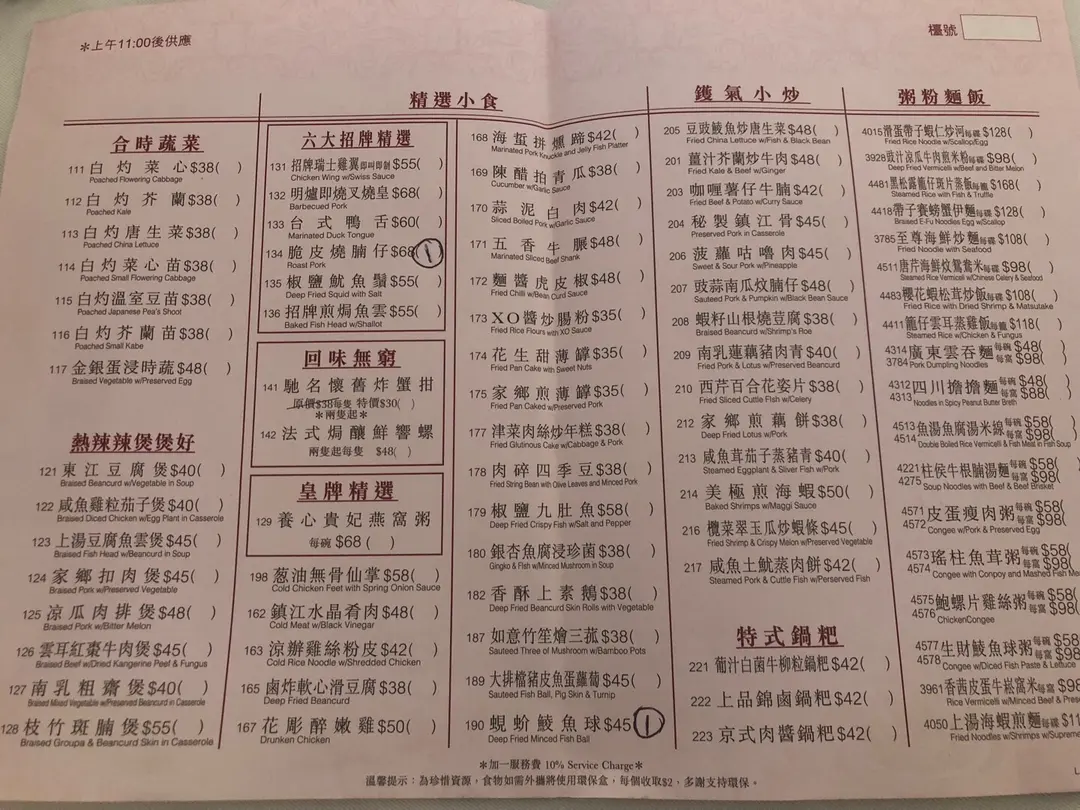 ＊上午11:00後供應
檯號
精選小食
鑊氣小炒
粥粉麵飯
合時蔬菜
111 白灼菜心$38( )
Poached Flowering Cabbage
112 白灼芥蘭$38( )
Poached Kale
113 白灼唐生菜$38( )
Poached China Lettuce
114 白灼菜心苗$38( )
Poached Small Flowering Cabbage
115 白灼溫室豆苗$38( )
Poached Japanese Pea's Shoot
116 白灼芥蘭苗$38( )
Poached Small Kabe
117 金銀蛋浸時蔬$48( )
Braised Vegetable w/Preserved Egg
熱辣辣煲煲好
121 東江豆腐煲$40( )
Braised Beancurd w/Vegetable in Soup
122 咸魚雞粒茄子煲$40( )
Braised Diced Chicken w/Egg Plant in Casserole
123 上湯豆腐魚雲煲$45( )
Braised Fish Head w/Beancurd in Soup
124 家鄉扣肉煲$45( )
Braised Pork w/Preserved Vegetable
125 凉瓜肉排煲$48( )
Braised Pork w/Bitter Melon
126 雲耳紅棗牛肉煲$45( )
Braised Beef w/Dried Kangerine Peef & Fungus
127 南乳粗齋煲$40( )
Braised Mixed Vegetable w/Preserved Beancurd in Casserole
128 枝竹斑腩煲$55( )
Braised Groupa & Beancurd Skin in Casserole
六大招牌精選
131 招牌瑞士雞翼即叫即制$55( )
Chicken Wing w/Swiss Sauce
132 明爐即燒叉燒皇$68( )
Barbecued Pork
133 台式鴨舌$60( )
Marinated Duck Tongue
134 脆皮燒腩仔$68(1)
Roast Pork
135 椒鹽魷魚鬚$55( )
Deep Fried Squid with Salt
136 招牌煎焗魚雲$55( )
Baked Fish Head w/Shallot
回味無窮
141 馳名懷舊炸蟹拑
原價$38每隻 特價$30( )
＊兩隻起＊
142 法式焗釀鮮響螺
兩隻起每隻 $48( )
皇牌精選
129 養心貴妃燕窩粥
每碗 $68 ( )
198 葱油無骨仙掌$58( )
Cold Chicken Feet with Spring Onion Sauce
162 鎮江水晶肴肉$48( )
Cold Meat w/Black Vinegar
163 涼辦雞絲粉皮$42( )
Cold Rice Noodle w/Shredded Chicken
165 鹵炸軟心滑豆腐$38( )
Deep Fried Beancurd
167 花彫醉嫩雞$50( )
Drunken Chicken
168 海蜇拼燻蹄$42( )
Marinated Pork Knuckle and Jelly Fish Platter
169 陳醋拍青瓜$38( )
Cucumber w/Garlic Sauce
170 蒜泥白肉$42( )
Sliced Boiled Pork w/Garlic Sauce
171 五香牛𦟌$48( )
Marinated Sliced Beef Shank
172 麵醬虎皮椒$48( )
Fried Chilli w/Bean Curd Sauce
173 XO醬炒腸粉$35( )
Fried Rice Flours with XO Sauce
174 花生甜薄罉$35( )
Fried Pan Cake with Sweet Nuts
175 家鄉煎薄罉$35( )
Fried Pan Caked w/Preserved Pork
177 津菜肉絲炒年糕$38( )
Fried Glutinous Cake w/Cabbage & Pork
178 肉碎四季豆$38( )
Fried String Bean with Olive Leaves and Minced Pork
179 椒鹽九肚魚$58( )
Deep Fried Crispy Fish w/Salt and Pepper
180 銀杏魚腐浸珍菌$38( )
Gingko & Fish w/Minced Mushroom in Soup
182 香酥上素鵝$38( )
Deep Fried Beancurd Skin Rolls with Vegetable
187 如意竹笙燴三菰$38( )
Sauteed Three of Mushroom w/Bamboo Pots
189 大排檔豬皮魚蛋蘿蔔$45( )
Sauteed Fish Ball, Pig Skin & Turnip
190 蜆蚧鯪魚球$45(1)
Deep Fried Minced Fish Ball
205 豆豉鯪魚炒唐生菜$48( )
Fried China Lettuce w/Fish & Black Bean
201 薑汁芥蘭炒牛肉$48( )
Fried Kale & Beef w/Ginger
203 咖喱薯仔牛腩$42( )
Fried Beef & Potato w/Curry Sauce
204 秘製鎮江骨$45( )
Preserved Pork in Casserole
206 菠蘿咕嚕肉$45( )
Sweet & Sour Pork w/Pineapple
207 豉蒜南瓜炆腩仔$48( )
Sauteed Pork & Pumpkin w/Black Bean Sauce
208 蝦籽山根燒荳腐$38( )
Braised Beancurd w/Shrimp's Roe
209 南乳蓮藕豬肉青$40( )
Fried Pork & Lotus w/Preserved Beancurd
210 西芹百合花姿片$38( )
Fried Sliced Cuttle Fish w/Celery
212 家鄉煎藕餅$38( )
Deep Fried Lotus w/Pork
213 咸魚茸茄子蒸豬青$40( )
Steamed Eggplant & Sliver Fish w/Pork
214 美極煎海蝦$50( )
Baked Shrimps w/Maggi Sauce
216 欖菜翠玉瓜炒蝦條$45( )
Fried Shrimp & Crispy Melon w/Preserved Vegetable
217 咸魚土魷蒸肉餅$42( )
Steamed Pork & Cuttle Fish w/Perserved Fish
特式鍋粑
221 葡汁白菌牛柳粒鍋粑$42( )
222 上品錦鹵鍋粑$42( )
223 京式肉醬鍋粑$42( )
4015 滑蛋帶子蝦仁炒河每碟$128( )
Fried Rice Noodle w/Scallop/Egg
3928 豉汁凉瓜牛肉煎米粉每碟$98( )
Deep Fried Vermicelli w/Beef and Bitter Melon
4481 黑松露龍仔斑片蒸飯每籠$168( )
Steamed Rice with Fish & Truffle
4418 帶子賽螃蟹伊麵每碟$128( )
Braised E-Fu Noodles Egg w/Scallop
3785 至尊海鮮炒麵每碟$108( )
Fried Noodle with Seafood
4511 唐芹海鮮炆鴛鴦米每碟$98( )
Steamed Rice Vermicell w/Chinese Celery & Seafood
4483 櫻花蝦松茸炒飯每碟$108( )
Fried Rice with Dried Shrimp & Matsutake
4411 籠仔雲耳蒸雞飯每籠$118( )
Steamed Rice w/Chicken & Fungus
4314 廣東雲吞麵每碗$48( )
3784 每窩$98( )
Pork Dumpling Noodles
4312 四川擔擔麵每碗$48( )
4313 每窩$88( )
Noodles in Spicy Peanut Butter Breth
4513 魚湯魚腐湯米線每碗$58( )
4514 每窩$98( )
Double Boiled Rice Vermicelli & Fish Meat in Fish Soup
4221 柱侯牛根腩湯麵每碗$58(
4275 每窩$98(
Soup Noodles with Beef & Beef Brisket
4571 皮蛋瘦肉粥每碗$58(
4572 每窩$98(
Congee w/Pork & Preserved Egg
4573 瑤柱魚茸粥每碗$58
4574 每窩$98
Congee with Conpoy and Mashed Fish Me
4575 鮑螺片雞絲粥每碗$58
4576 每窩$98
ChickenCongee
4577 生財鯪魚球粥每碗$58
4578 每窩$98
Congee w/Diced Fish Paste & Lettuce
3961 香茜皮蛋牛崧窩米每窩$98
Rice Vermicelli w/Minced Beef &
4050 上湯海蝦煎麵每碟$11
Fried Noodles w/Shrimps w/Supreme
＊加一服務費 10% Service Charge＊
溫馨提示：為珍惜資源，食物如需外攜將使用環保盒，每個收取$2，多謝支持環保。